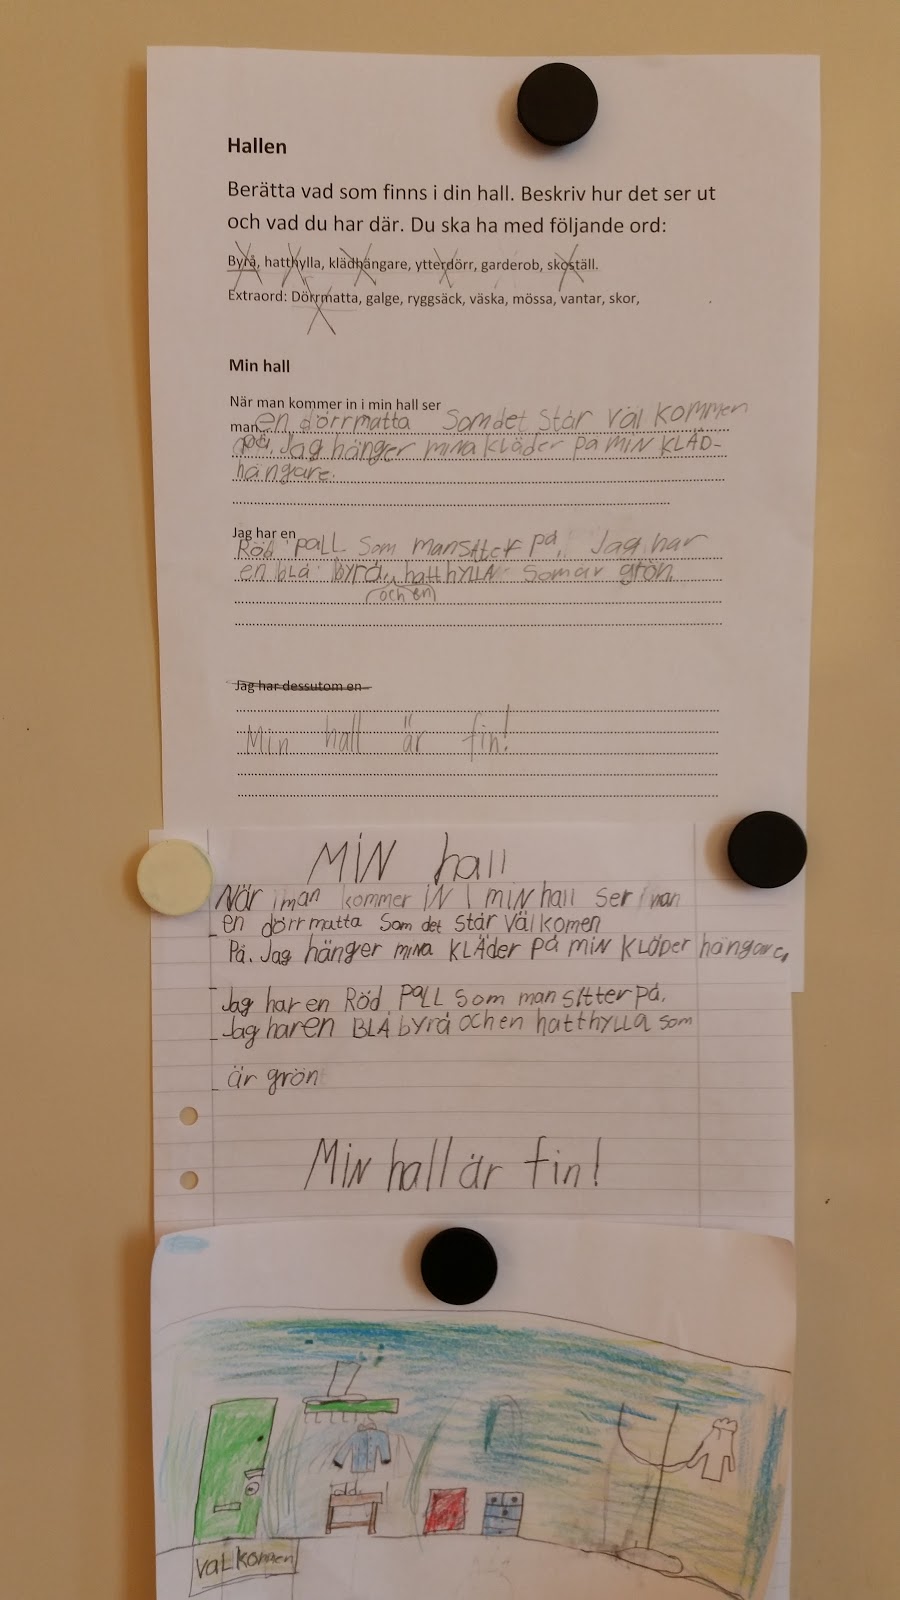 Hallen
Berätta vad som finns i din hall. Beskriv hur det ser ut
och vad du har där. Du ska ha med följande ord:
Byrå, hatthylla, klädhängare, ytterdörr, garderob, skoställ.
Extraord: Dörrmatta, galge, ryggsäck, väska, mössa, vantar, skor,
Min hall
När man kommer in i min hall ser
man en dörrmatta Som det står väl kommen
på. Jag hänger mina kläder på MiN KLÄD-
hängare.
Jag har en
Röd pall Som man sitter på. Jag har
en blå byrå hatthYLLA Som är grön.
och en
Jag har dessutom en
Min hall är fin!
MiN hall
När man kommer iN i MiN hall Ser man
en dörrmatta Som det står välkomen
På. Jag hänger MiNA KLÄder på MiN KLÖDer hängare.
Jag har en Röd PaLL Som man sitter på.
Jag har en BLÅ byrå och en hatthylla som
är grön
MiN hall är fin!
vaLkommen